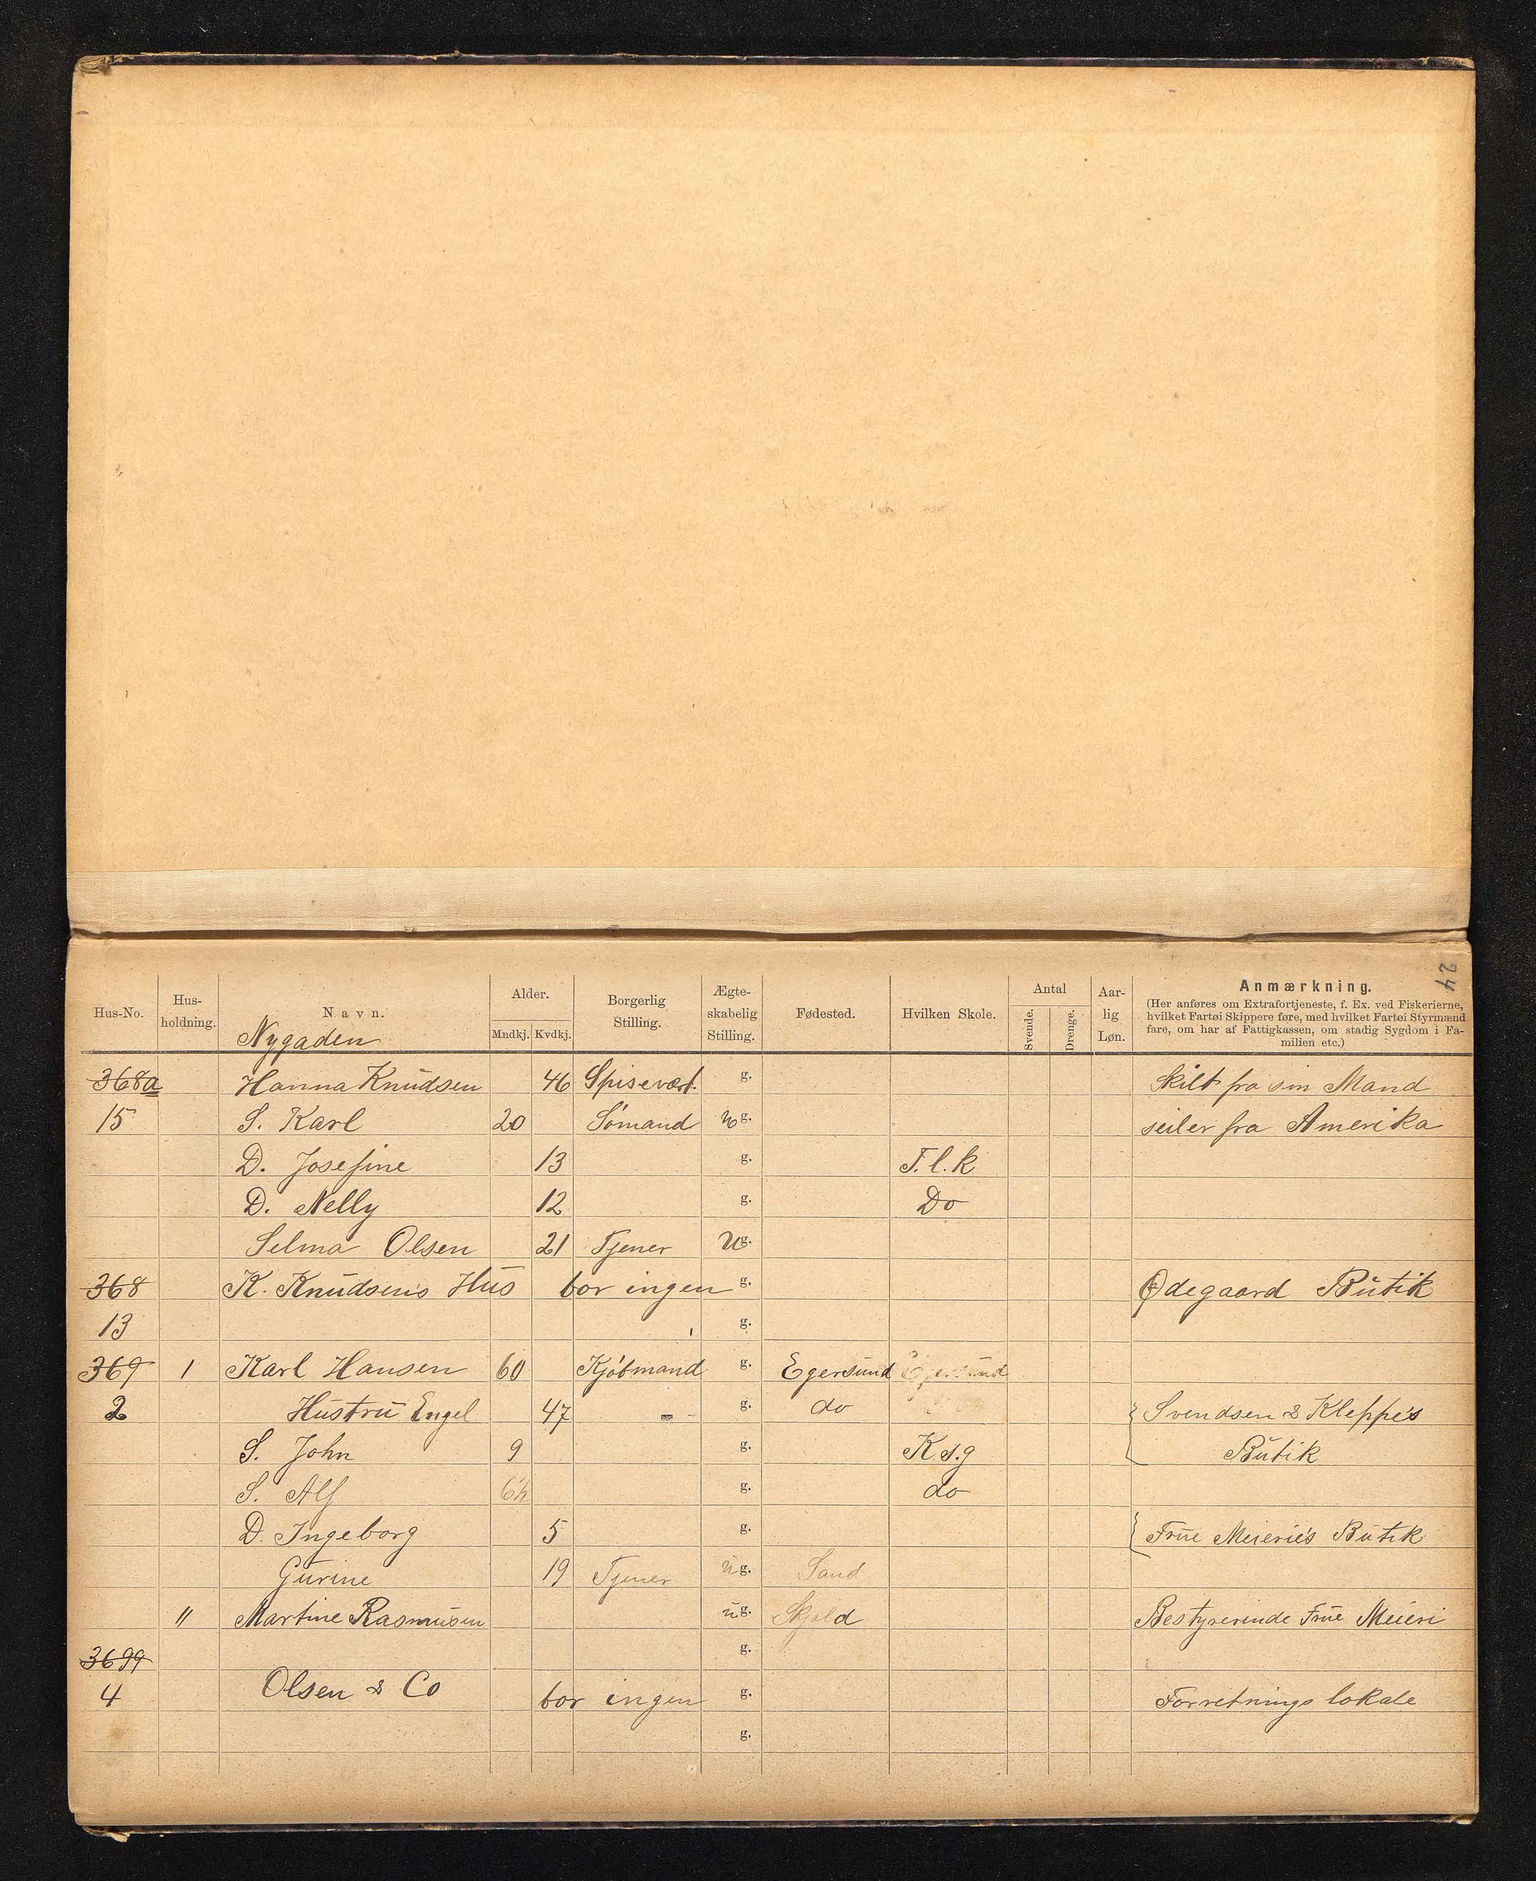 24
Hus-No. Hus-holdning. Navn. Alder. Mndkj. Kvdkj. Borgerlig Stilling. Ægte-skabelig Stilling. Fødested. Hvilken Skole. Antal Svende. Drenge. Aar-lig Løn. Anmærkning.
(Her anføres om Extrafortjeneste, f. Ex. ved Fiskerierne,
hvilket Fartøi Skippere føre, med hvilket Fartøi Styrmænd
fare, om har af Fattigkassen, om stadig Sygdom i Fa-
milien etc.)
Nygaden
368a Hanna Knudsen 46 Spisevært g. Skilt fra sin Mand
15 S. Karl 20 Sømand ug. seiler fra Amerika
D. Josefine 13 g. T.l.k
D. Nelly 12 g. Do
Selma Olsen 21 Tjener Ug.
368 K. Knudsens Hus bor ingen g. Ødegaard Butik
13 g.
369 1 Karl Hansen 60 Kjøbmand g. Egersund Egersund
2 Hustru Engel 47 - g. do Svendsen & Kleppe's
S. John 9 g. K.s.g Butik
S. Alf 6½ g. do
D. Ingeborg 5 g. Frue Meierie's Butik
Gurine 19 Tjener ug. Sand
" Martine Rasmusen ug. Skjold Bestyrerinde Frue Meieri
g.
4 Olsen & Co bor ingen g. Forretningslokale
g.